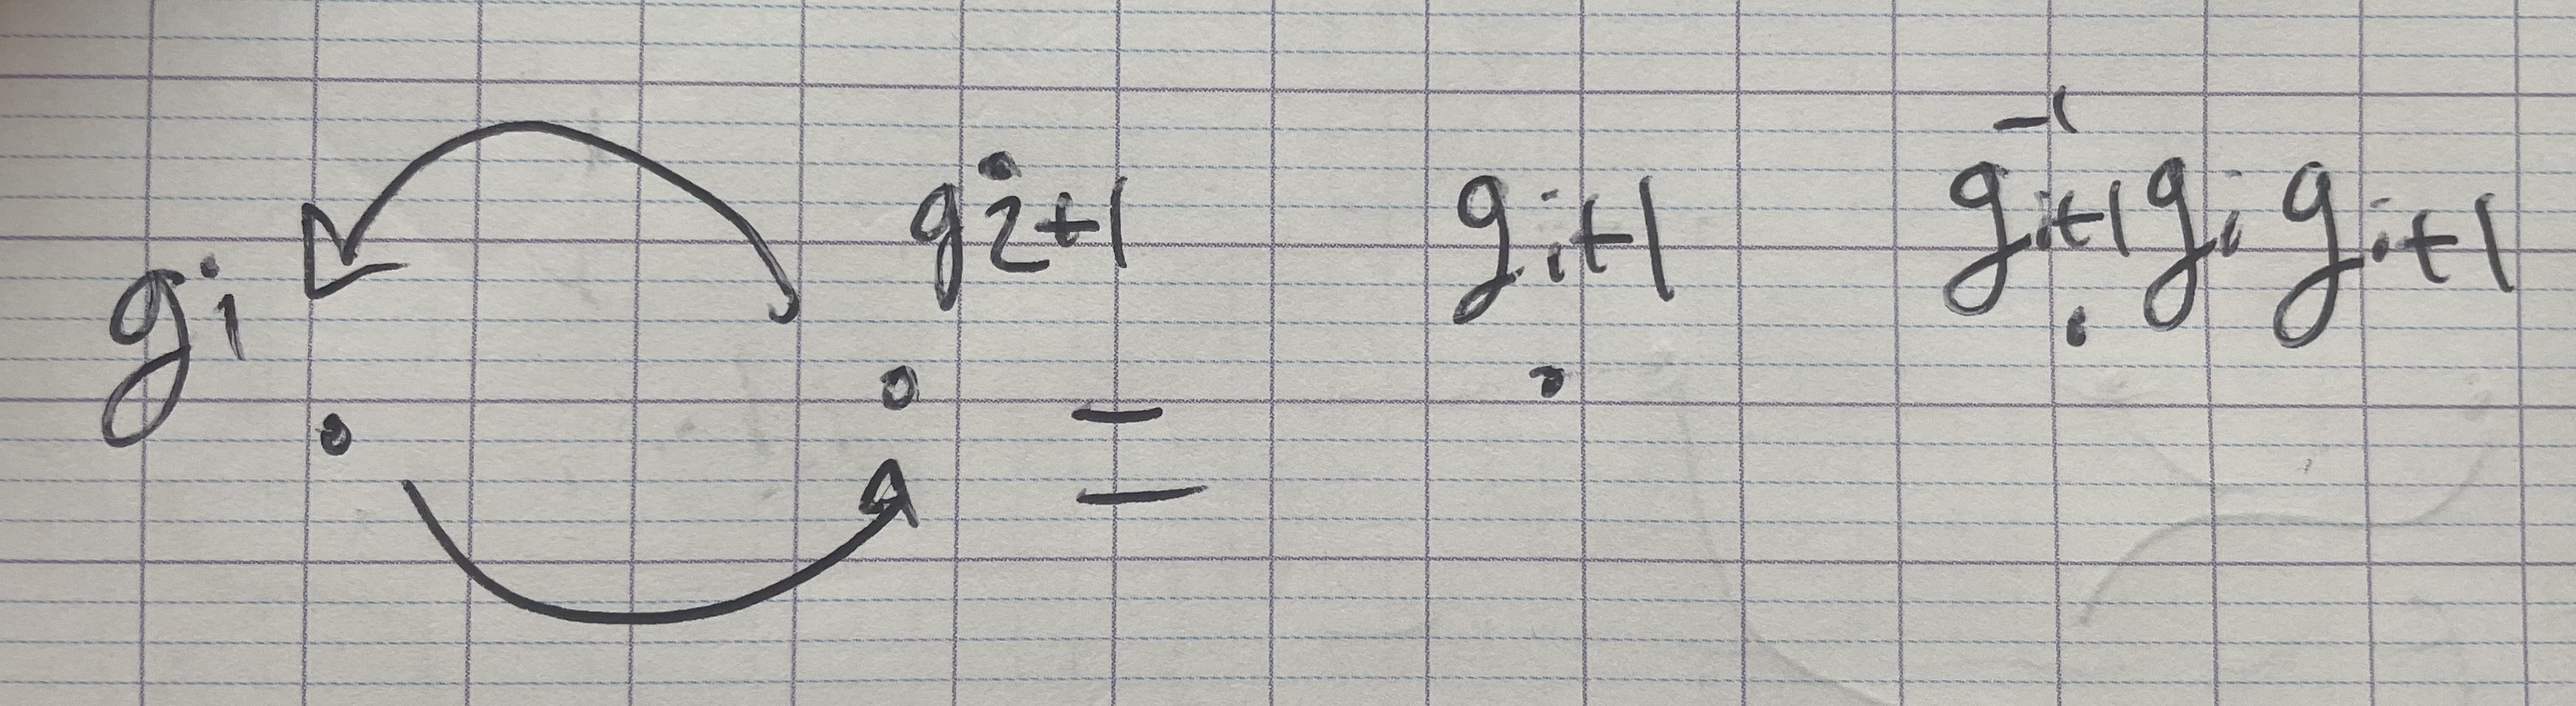 gᵢ gᵢ₊₁ = gᵢ₊₁ gᵢ₊₁⁻¹ gᵢ gᵢ₊₁